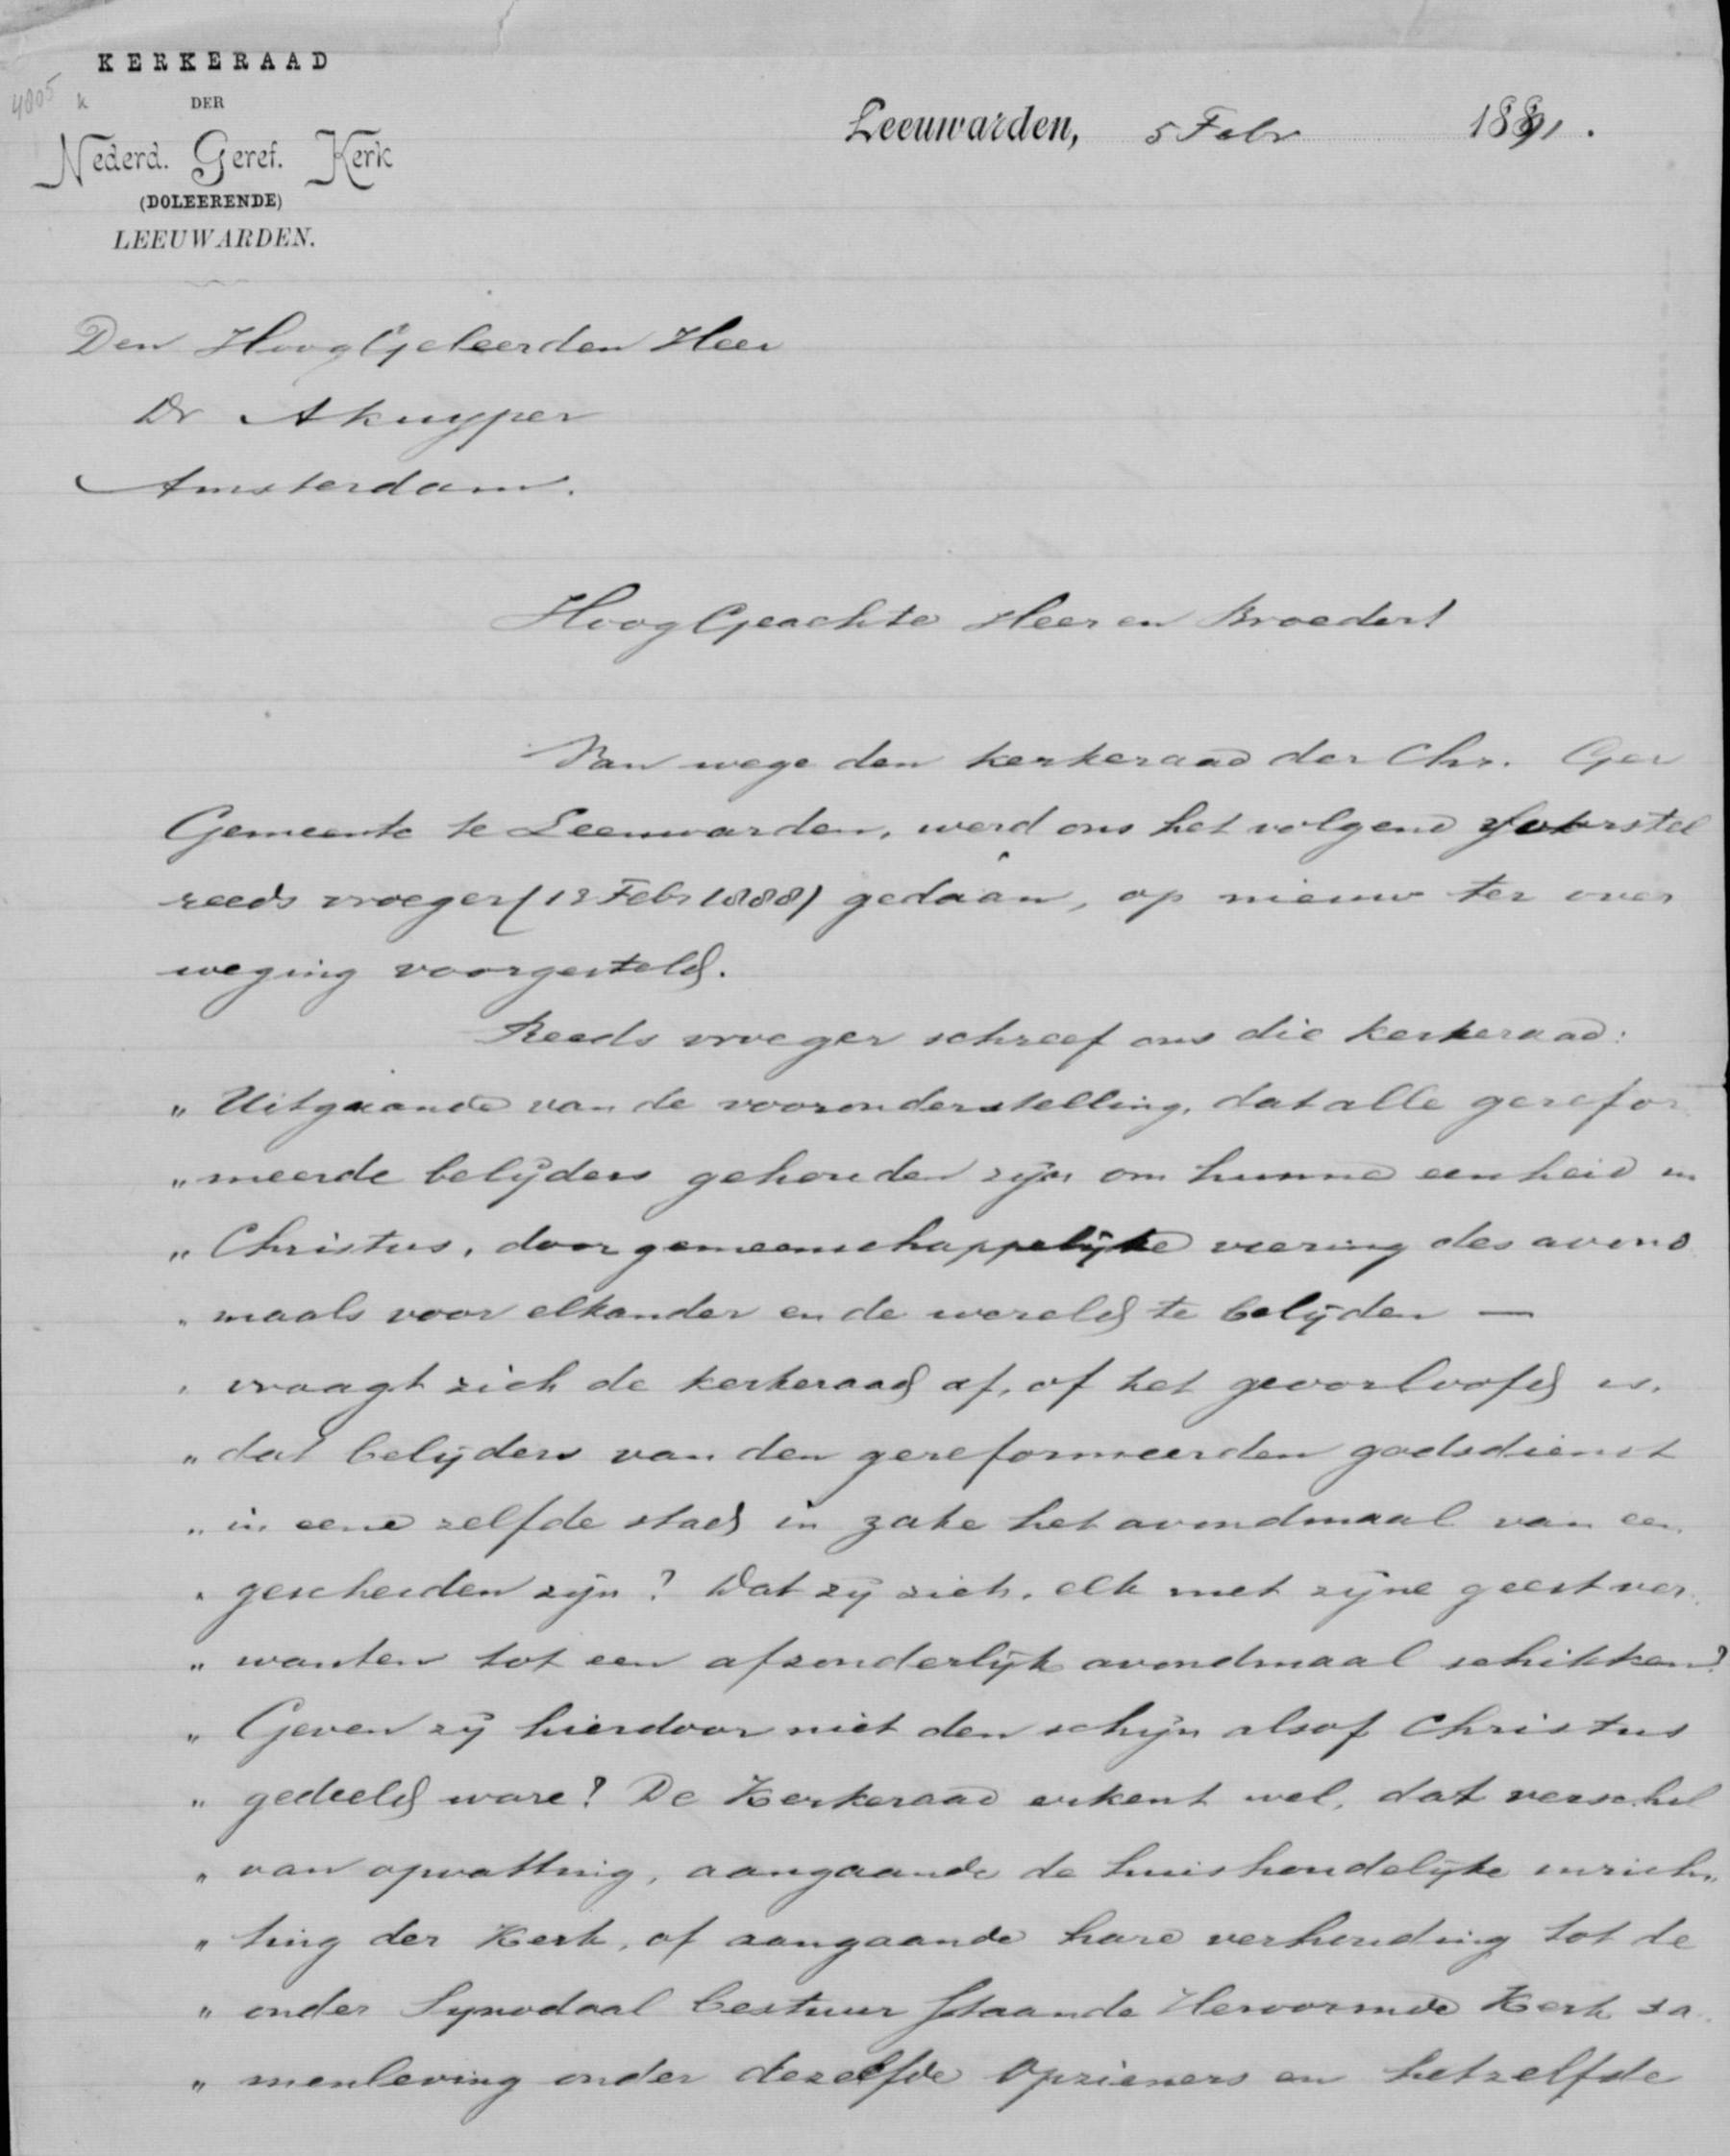 KERKERAAD
DER
Nederd. Geref. Kerk
(DOLEERENDE)
LEEUWARDEN.
4805
Leeuwarden, 5 Febr 1891.
Den HoogGeleerden Heer
Dr A Kuyper
Amsterdam.
HoogGeachte Heer en Broeder!
Van wege den kerkeraad der Chr. Ger
Gemeente te Leeuwarden, werd ons het volgend voorstel
reeds vroeger (12 Febr 1888) gedaan, op nieuw ter over
weging voorgesteld.
Reeds vroeger schreef ons die kerkeraad:
„ Uitgaande van de vooronderstelling, dat alle gerefor
„ meerde belijders gehouden zijn om hunne eenheid in
„ Christus, door gemeenschappelijke viering des avond
„ maals voor elkander en de wereld te belijden —
„ vraagt zich de kerkeraad af, of het geoorloofd is,
„ dat belijders van den gereformeerden godsdienst
„ in eene zelfde stad in zake het avondmaal van een
„ gescheiden zijn? Dat zij zich, elk met zijne geestver
„ wanten tot een afzonderlijk avondmaal schikken?
„ Geven zij hierdoor niet den schijn alsof Christus
„ gedeeld ware? De Kerkeraad erkent wel, dat verschil
„ van opvatting, aangaande de huishoudelijke inrich„
„ ting der Kerk, of aangaande hare verhouding tot de
„ onder Synodaal bestuur staande Hervormde Kerk sa
„ menleving onder dezelfde Opzieners en hetzelfde